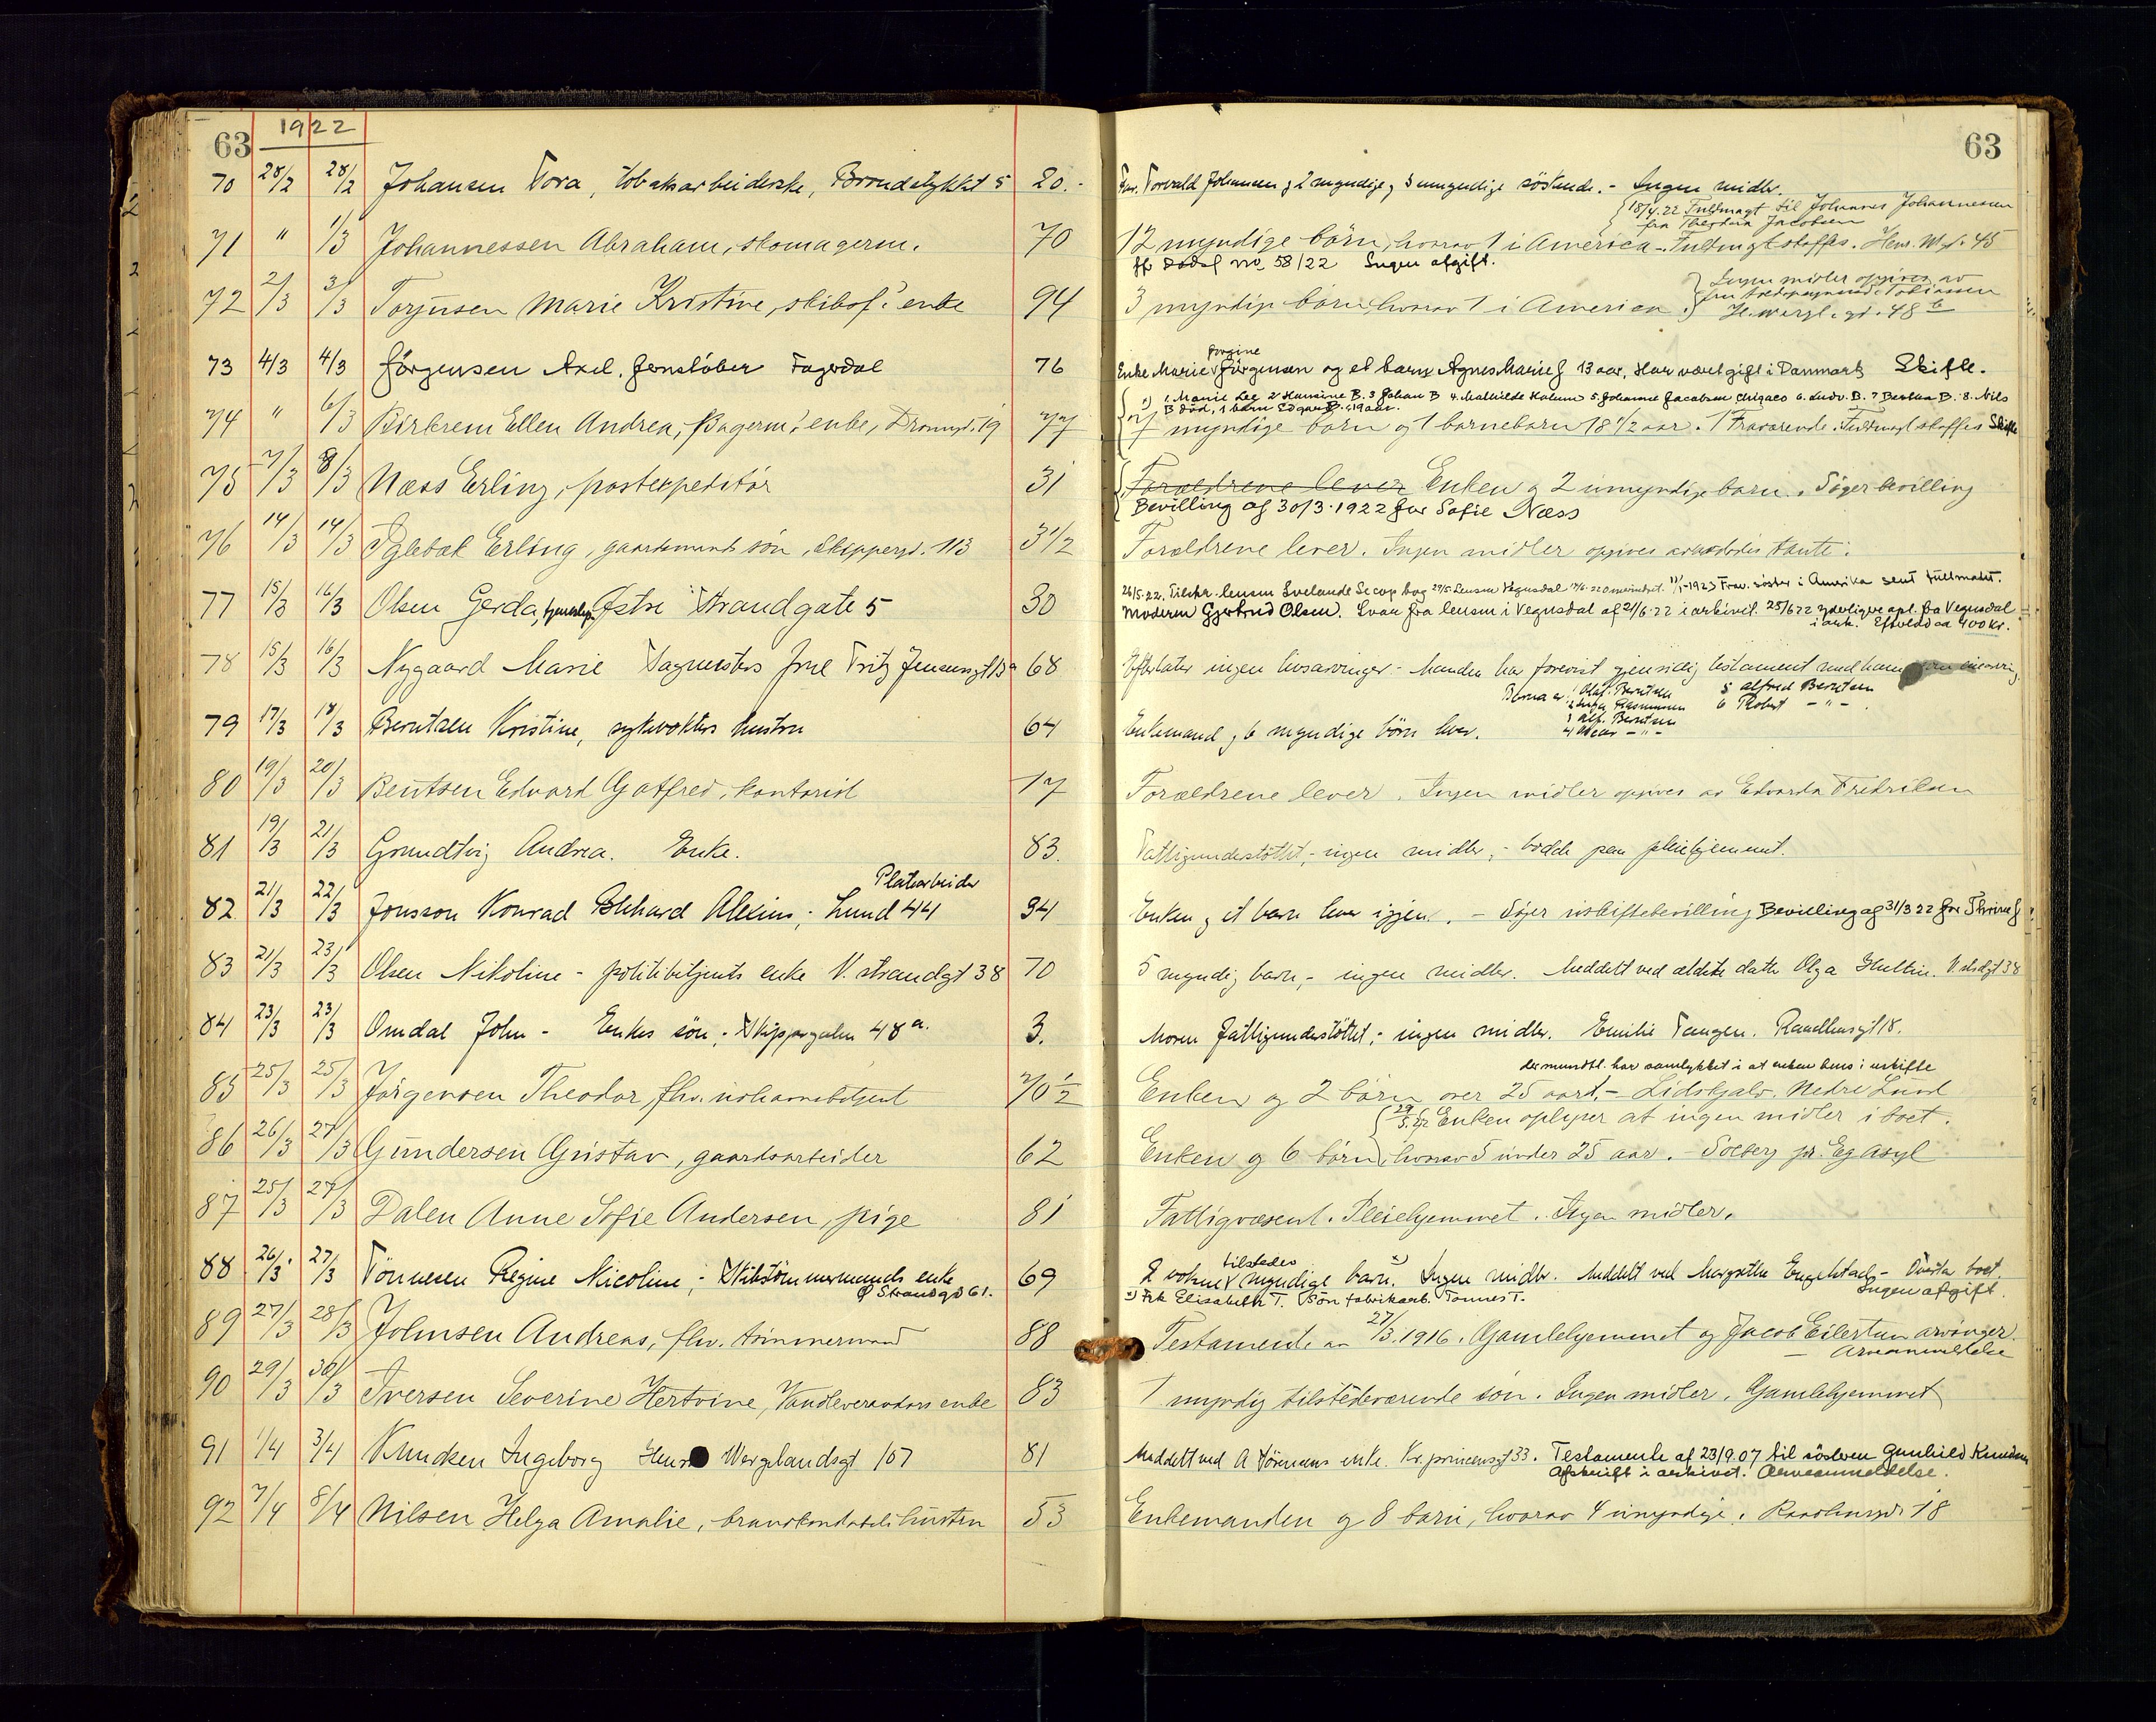 63 1922 63
70 28/2 28/2 Johansen Tora, tobaksarbeiderske, Brøndstykket 5 20.- Far. Torvald Johansen og 2 myndige og 3 umyndige söskende. - Ingen midler.
{18/4.22 Fuldmagt til Johannes Johannessen
fra Jacobsen
71 " 1/3 Johannessen Abraham, skomagerm. 70 12 myndige börn, hvorav 1 i America. Fuldmagt skaffes. Henr. Wgl. 45
no 58/22 Ingen afgift.
72 2/3 3/3 Torjusen Marie Kristine, skibsf. enke 94 3 myndige börn hvorav 1 i America.
} Ingen midler opgives av
fru Tobiassen
H. Wergl. gd. 48 b
73 4/3 4/3 Jörgensen Axel. Jernstöber Fagerdal 76 Enke Marie Jörgine Jörgensen og et barn Agnes Marie J 13 aar. Har været gift i Danmark Skifte.
1) 1. Marie Lee 2 Hansine B. 3 Johan B 4. Mathilde Holum 5. Johanne Jacobsen Chicago 6. Ludv. B. 7 Bertha B. 8. Nils
B död, 1 barn Edgar B. 19 aar.
74 " 6/3 Birkrem Ellen Andrea, Bagerm. enke, Dronngd. 19 77 7 myndige börn og 1 barnebarn 18 1/2 aar. 1 Fraværende. Fuldmagt skaffes Skifte
75 7/3 8/3 Næss Erling, postexpeditör 31 Forældrene lever Enken og 2 umyndige barn. Söger bevilling
Bevilling af 30/3.1922 for Sofie Næss
76 14/3 14/3 Erling, gaardsmands sön, Skippergd. 113 3 1/2 Forældrene lever. Ingen midler opgives avdödes tante.
26/5.22. Tilskr. lensm Sveland 29/5 Lensm Vegusdal 1923 Frav. söster i Amerika sent fuldmakt.
77 15/3 16/3 Olsen Gerda, Østre Strandgate 5 30 Moderen Gjertrud Olsen. Svar fra lensm i Vegusdal af 21/6.22 i arkivet. 25/6 22 yderligere opl. fra Vegusdal
i ark. Efterlod ca 400 kr.
78 15/3 16/3 Nygaard Marie Vagmesters frue Fritz Jensensgt 13a 68 Efterlater ingen livsarvinger. - Manden har forevist gjensidig testament med ham
Barna er: 1 Olaf Berntsen 5 Alfred Berntsen
2 Rasmussen 6 Robert - " -
79 17/3 18/3 Berntsen Kristine, sykevokters hustru 64 Enkemand og 6 myndige börn lever. 3 Alf. Berntsen
4 Oscar - " -
80 19/3 20/3 Bentsen Edvard Gotfred, kontorist 17 Forældrene lever. Ingen midler opgives av Edvarda Fredriksen
81 19/3 21/3 Grundtvig Andrea. Enke. 83. Fattigunderstöttet, - ingen midler, - bodde paa pleiehjemmet.
Platearbeider
82 21/3 22/3 Jonsson Konrad Alexius, Lund 44 34 Enken og et barn lever igjen. - Söger uskiftebevilling Bevilling af 31/3 22 for Thrine J
83 21/3 23/3 Olsen Nikoline - politibetjents enke V. strandgt 38 70 5 myndig barn, - ingen midler. Meddelt ved ældste datter Olga Hultin. V. strdgt 38
84 23/3 23/3 Omdal John - Enkes sön, Skippergaten 48a. 3. Moren fattigunderstöttet, - ingen midler. Emilie Tangen. Raadhusgt 18.
der mundtl. har samtykket i at enken hens. i uskifte
85 25/3 25/3 Jörgensen Theodor, fhv. 70 1/2 Enken og 2 börn over 25 aar. - Nedre Lund
{29/3.22 Enken oplyser at ingen midler i boet.
86 26/3 27/3 Gundersen Gustav, gaardsarbeider 62 Enken og 6 börn, hvorav 5 under 25 aar. - Solberg pr. Eg Asyl
87 25/3 27/3 Dalen Anne Sofie Andersen, pige 81 Fattigvæsent. Pleiehjemmet. Ingen midler.
88 26/3 27/3 Tönnesen Regine Nicoline, Skibstömmermands enke 69 2 voksne tilstedev myndige barn. x) Ingen midler. Meddelt ved Margrethe Engelstad - Overtar boet.
Ø Strandgd 61. x) Frk Elisabeth T. Sön fabrikarb. Tönnes T. Ingen afgift.
89 27/3 28/3 Johnsen Andreas, fhv. tömmermand 88 Testamente av 27/3.1916. Gamlehjemmet og Jacob Eilertsen arvinger.
Arveanmeldelse
90 29/3 30/3 Iversen Severine Hertvine, Vandleverandørs enke 83 1 myndig tilstedeværende sön. Ingen midler. Gamlehjemmet
91 1/4 3/4 Knudsen Ingeborg Henr. Wergelandsgt 107 81 Meddelt ved A Sörensens enke. Kr. princensgt 33. Testamente af 23/9.07 til sösteren Gunhild Knudsen
Afskrift i arkivet. Arveanmeldelse.
92 7/4 8/4 Nilsen Helga Amalie, brandkonstabels hustru 53 Enkemanden og 8 barn, hvorav 4 umyndige. Raadhusgd. 18